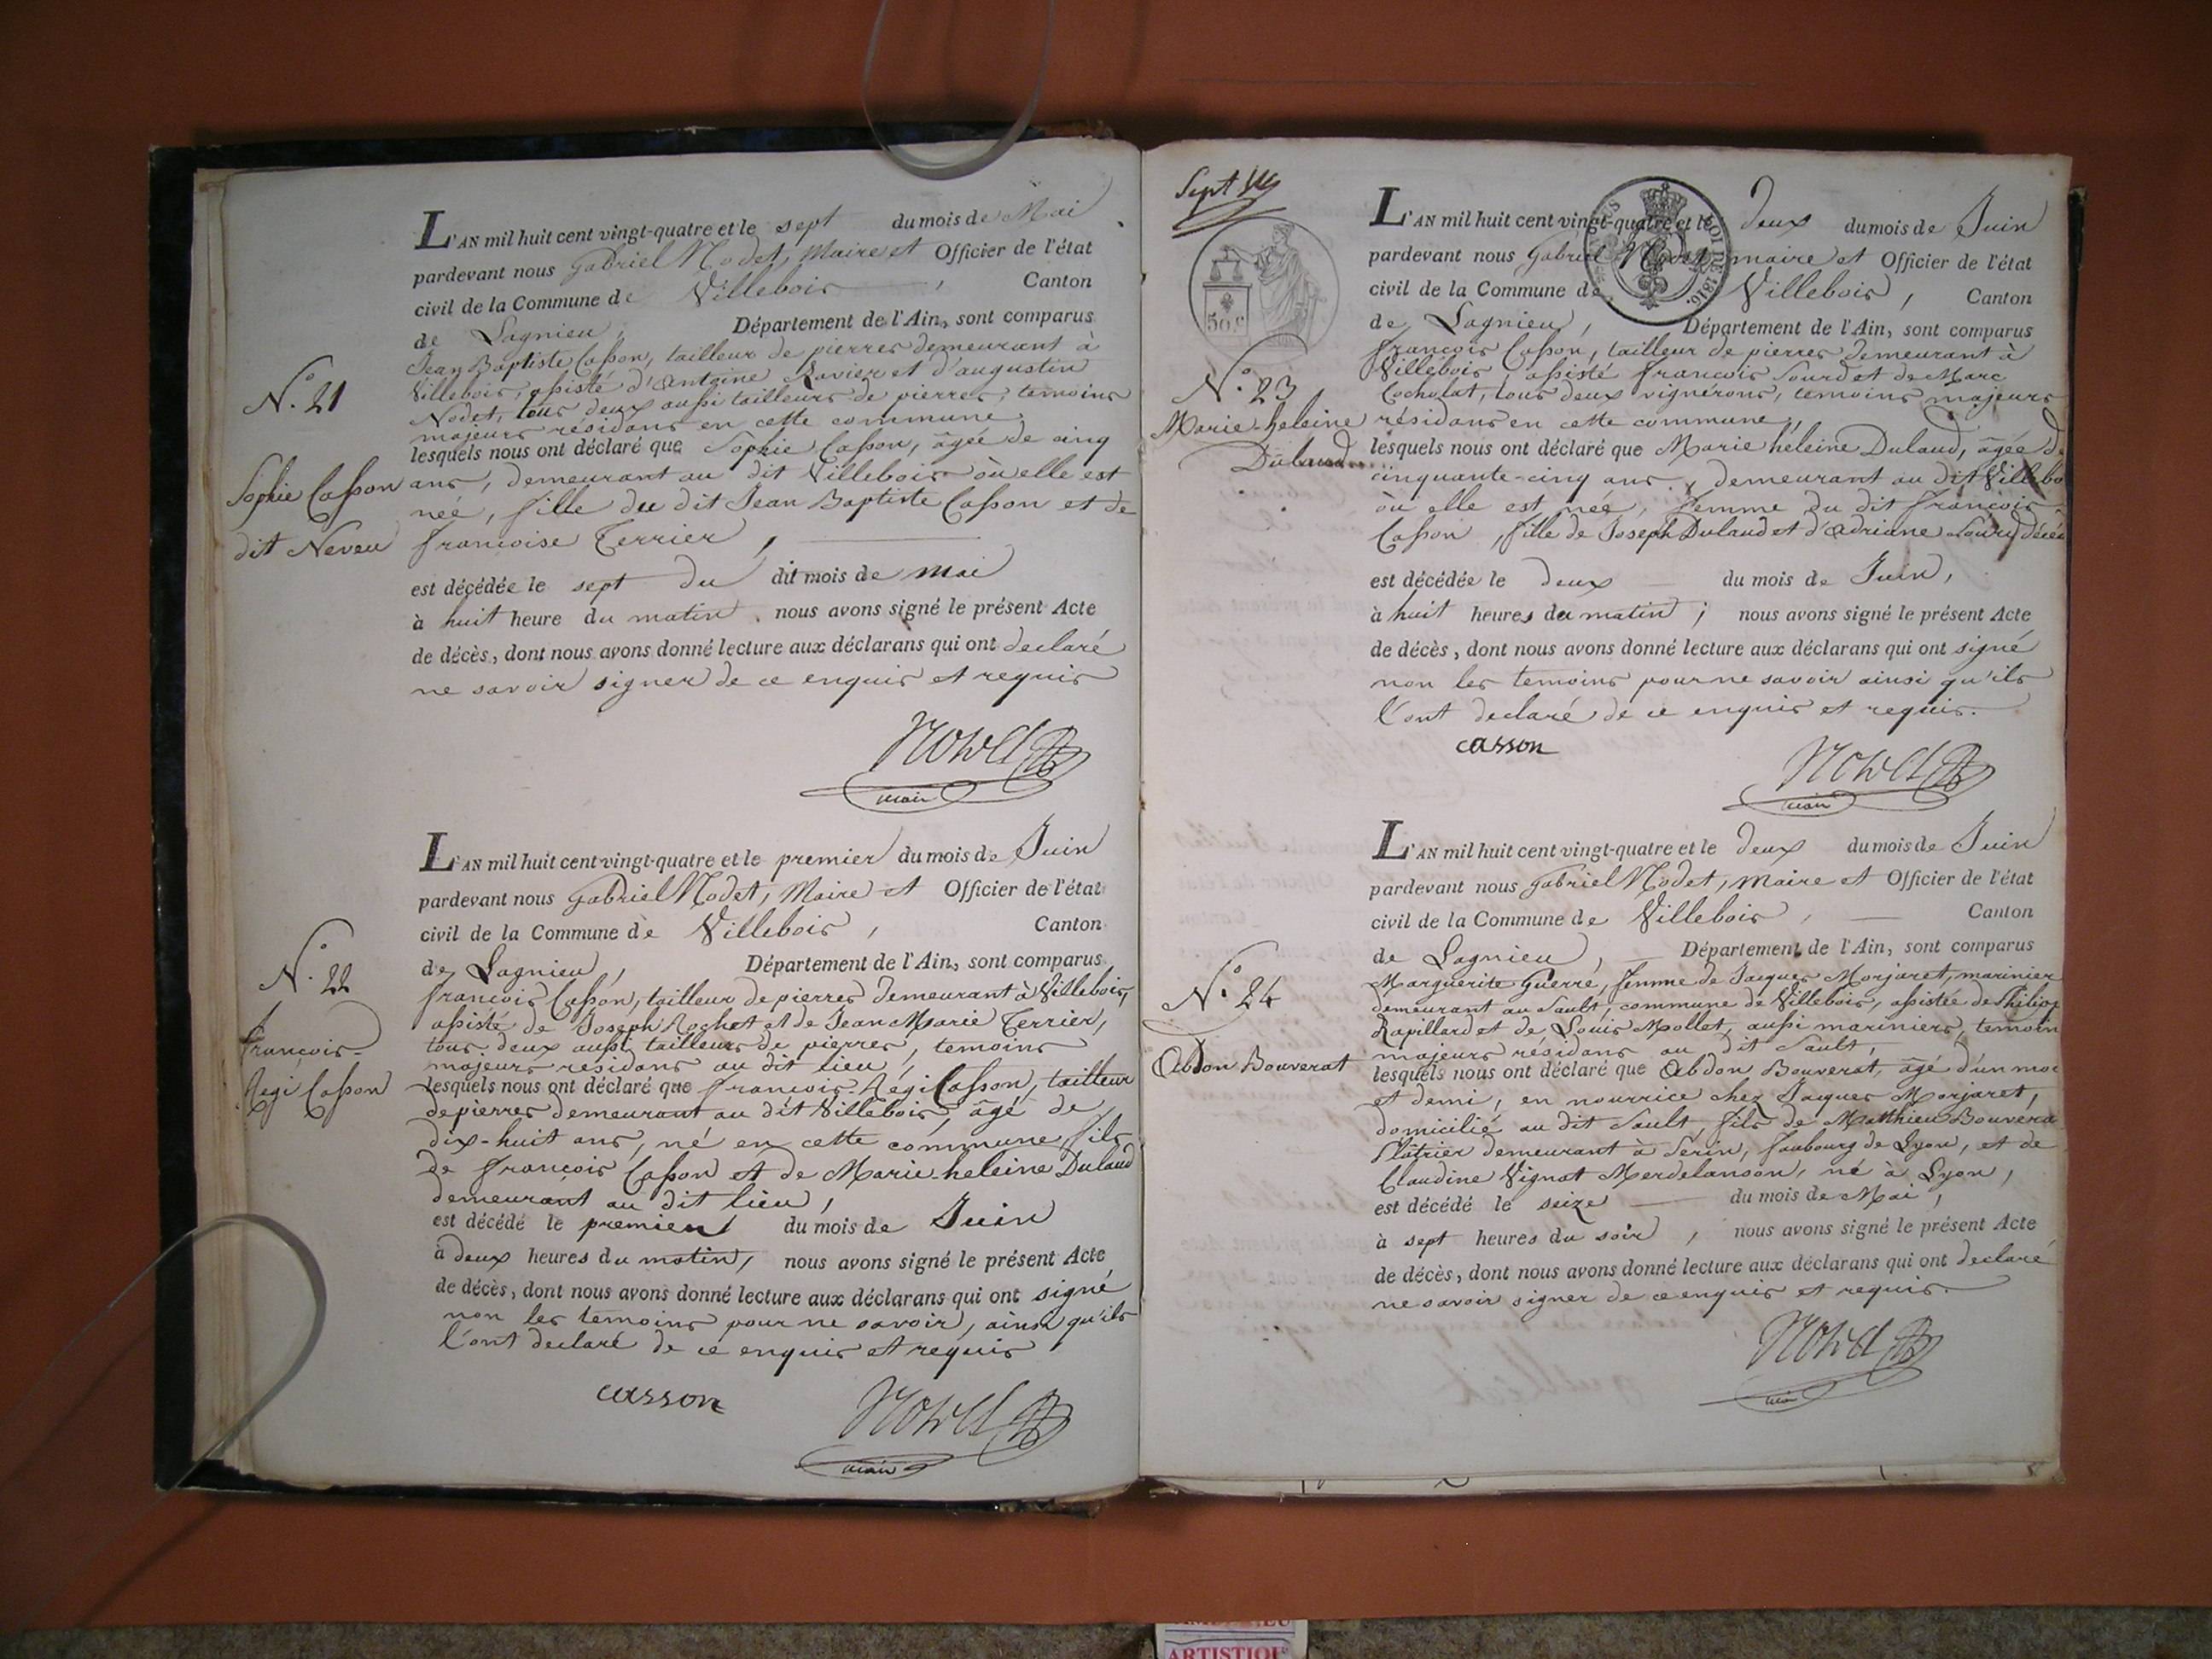 L'AN mil huit cent vingt-quatre et le sept du mois de Mai
pardevant nous Gabriel Nodet, Maire et Officier de l'état
civil de la Commune de Villebois, Canton
de Lagnieu, Département de l'Ain, sont comparus
Jean Baptiste Casson, tailleur de pierres demeurant à
Villebois, assisté d'antoine Ravier et d'augustin
Nodet, tous deux aussi tailleurs de pierres, temoins
majeurs résidans en cette commune,
lesquels nous ont déclaré que Sophie Casson, âgée de cinq
ans, demeurant au dit Villebois où elle est
née, fille du dit Jean Baptiste Casson et de
françoise Terrier,
est décédée le sept du dit mois de mai
à huit heure du matin, nous avons signé le présent Acte
de décès, dont nous avons donné lecture aux déclarans qui ont declaré
ne savoir signer de ce enquis et requis
N.° 21
Sophie Casson
dit Neveu
Nodet
maire
L'AN mil huit cent vingt-quatre et le premier du mois de Juin
pardevant nous Gabriel Nodet, Maire et Officier de l'état
civil de la Commune de Villebois, Canton
de Lagnieu, Département de l'Ain, sont comparus
françois Casson, tailleur de pierres demeurant à Villebois,
assisté de Joseph Rochet et de Jean Marie Terrier,
tous deux aussi tailleurs de pierres, temoins
majeurs résidans au dit lieu,
lesquels nous ont déclaré que françois-Régi Casson, tailleur
de pierres demeurant au dit Villebois, âgé de
dix-huit ans, né en cette commune, fils
de françois Casson et de Marie-heleine Dulaud
demeurant au dit lieu,
est décédé le premier du mois de Juin
à deux heures du matin, nous avons signé le présent Acte
de décès, dont nous avons donné lecture aux déclarans qui ont signé
non les temoins pour ne savoir, ainsi qu'ils
l'ont declaré de ce enquis et requis
N.° 22
françois-
Régi Casson
casson
Nodet
maire
Sept
50 c
ROI DE 1816.
L'AN mil huit cent vingt-quatre et le deux du mois de Juin
pardevant nous Gabriel Nodet maire et Officier de l'état
civil de la Commune de Villebois, Canton
de Lagnieu, Département de l'Ain, sont comparus
françois Casson, tailleur de pierres demeurant à
Villebois, assisté françois Sourd et de Marc
Cocholat, tous deux vignérons, temoins majeurs
résidans en cette commune,
lesquels nous ont déclaré que Marie héleine Dulaud, âgée d
cinquante-cinq ans, demeurant au dit Villebo
où elle est née, femme du dit françois
Casson, fille de Joseph Dulaud et d'adriane Sourd décé
est décédée le deux du mois de Juin,
à huit heures du matin; nous avons signé le présent Acte
de décès, dont nous avons donné lecture aux déclarans qui ont signé
non les temoins pour ne savoir ainsi qu'ils
l'ont declaré de ce enquis et requis.
N.° 23
Marie-heleine
Dulaud
casson
Nodet
maire
L'AN mil huit cent vingt-quatre et le deux du mois de Juin
pardevant nous Gabriel Nodet, maire et Officier de l'état
civil de la Commune de Villebois, Canton
de Lagnieu, Département de l'Ain, sont comparus
Marguerite Guerre, femme de Jacques Morjaret, marinier
demeurant au Sault, commune de Villebois, assistée de Philipp
Rapillard et de Louis Mollet, aussi mariniers, temoin
majeurs résidans au dit Sault,
lesquels nous ont déclaré que Abdon Bouverat, âgé d'un moi
et demi, en nourrice chez Jacques Morjaret,
domicilié au dit Sault, fils de Matthieu Bouvera
Plâtrier demeurant à Serin, faubourg de Lyon, et de
Claudine Vignat Merdelanson, né à Lyon,
est décédé le seize du mois de Mai,
à sept heures du soir, nous avons signé le présent Acte
de décès, dont nous avons donné lecture aux déclarans qui ont declaré
ne savoir signer de ce enquis et requis.
N.° 24
Abdon Bouverat
Nodet
maire
ARTISTIQUE